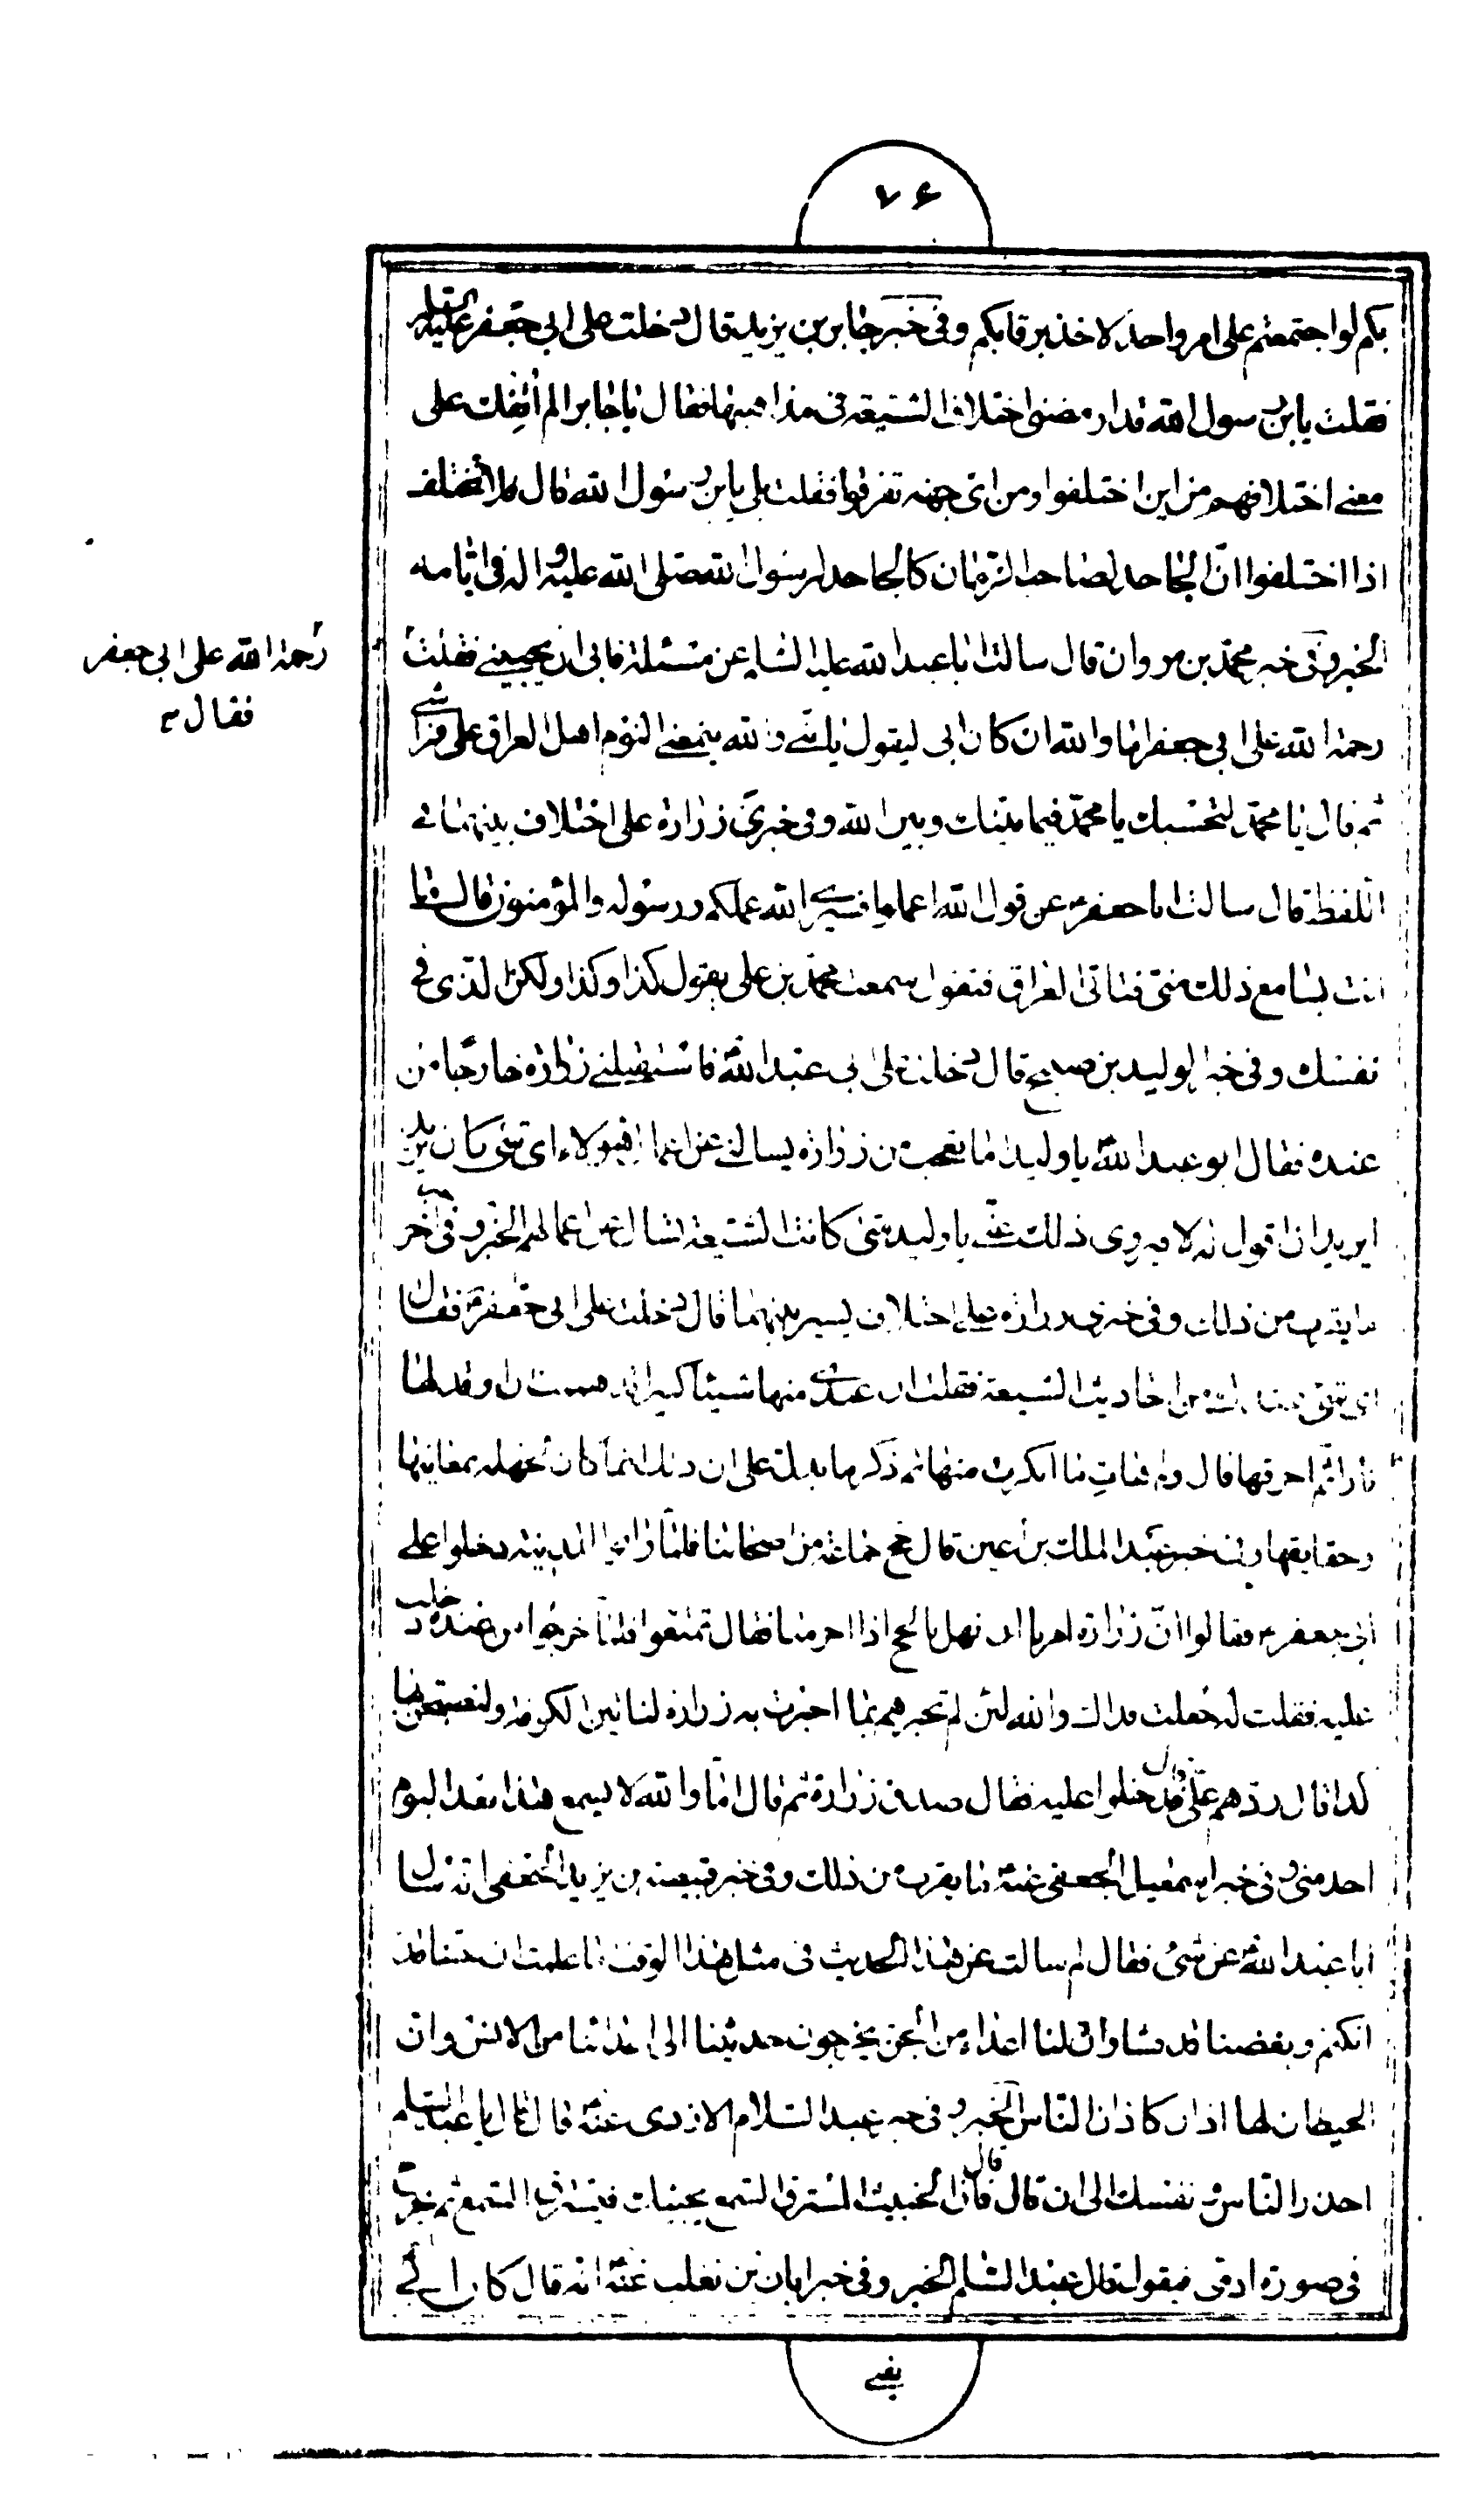 ٧۶
بكم لو اجتمعتم على امر واحد لاخذ برقابكم وفى خبر جابر بن يزيد قال دخلت على ابى جعفر عليه السلام
فقلت يابن رسول الله قد ارمضنى اختلاف الشيعه فى مذاهبها فقال يا جابر الم اقفك على
معنى اختلافهم من اين اختلفوا ومن اى جهه تفرقوا فقلت بلى يابن رسول الله قال فلا تختلف
اذا اختلفوا ان الجاحد لصاحب الزمان كالجاحد لرسول الله صلى الله عليه واله فى ايامه
الخبر وفى خبر محمد بن مروان قال سالت ابا عبد الله عليه السلام عن مسئلة فابى ان يجيبنى فقلت
رحمة الله على ابى جعفر اما والله ان كان ابى ليقول بمعنى القوم اهل العراق على
ثم قال يا محمد لتحسبك يا محمد فيما بينك وبين الله وفى خبرى زرارة على اختلاف بينهما فى
اللفظ قال سالت ابا جعفر عن قول الله اعملوا فسيرى الله عملكم ورسوله والمؤمنون قال
انت تسمع ذلك منى فتاتى العراق فتقول سمعت محمد بن على يقول كذا وكذا ولكن الذى فى
نفسك وفى خبر الوليد بن صبيح قال دخلت على ابى عبد الله فاستقبلنى زرارة خارجا من
عنده فقال ابو عبد الله يا وليد اما تعجب من زرارة يسالنى عن اعمال هؤلاء اى شىء كان يريد
ايريد ان اقول له لا فيروى ذلك عنى يا وليد متى كانت الشيعة تسال عن اعمالهم الخبر وفى اخر
ما يقرب من ذلك وفى خبرى زرارة على اختلاف يسير بينهما قال دخلت على ابى جعفر فقال
من احاديث الشيعة فقلت ان عندى منها شيئا كثيرا قد هممت ان اوقد لها
نارا ثم احرقها قال ولم هات ما انكرت منها ثم ذكرها يدل على ان ذلك انما كان لجهله بمعانيها
وحقايقها وفى خبر عبد الملك بن اعين قال حج جماعة من اصحابنا فلما وافوا المدينه دخلوا على
ابى جعفر فقالوا ان زرارة امرنا ان نهل بالحج اذا احرمنا فقال تمتعوا فلما خرجوا من عنده دخلت
عليه فقلت له جعلت فداك والله لئن لم تخبرهم بما اخبرت به زرارة لناتين الكوفة ولنصبحن بها
كذابا قال ردهم على قال فدخلوا عليه فقال صدق زرارة ثم قال اما والله لا يسمع هذا بعد اليوم
احد منى وفى خبر اسمعيل الجعفى عنه ما يقرب من ذلك وفى خبر قبيصة بن يزيد الجعفى انه سال
ابا عبد الله عن شىء فقال لم سالت عن هذا الحديث فى مثل هذا الوقت اما علمت ان حبنا قد
اكتتم وبغضنا قد فشا وان لنا اعداء من الجن يخرجون حديثنا الى اعدائنا من الانس وان
الحيطان لها اذان كاذان الناس الخبر وفى خبر عبد السلام الازدى عنه قال يا عبد السلام
احذر الناس ونفسك الى ان قال قال فان الخبيث المسترق السمع يجيئك فيسترق السمع ثم يخرج
فى صورة ادمى فيقول قال عبد السلام الخبر وفى خبر ابان بن تغلب عنه انه قال كان ابى
رحمة الله على ابى جعفر
فقال